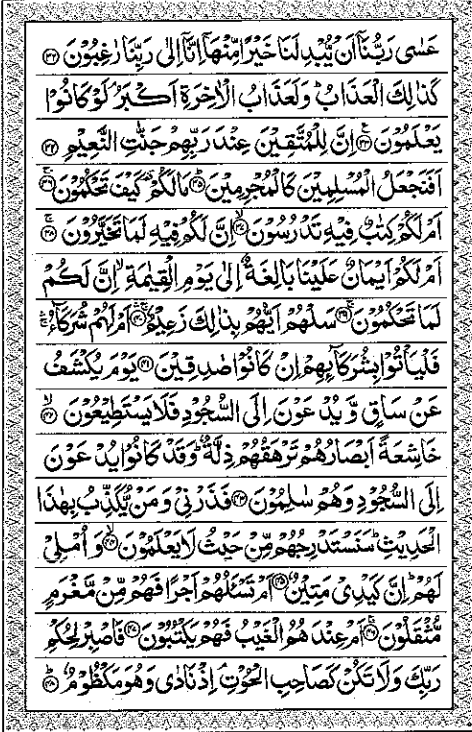 عَسٰى رَبُّنَآ اَنْ يُّبْدِلَنَا خَيْرًا مِّنْهَآ اِنَّآ اِلٰى رَبِّنَا رٰغِبُوْنَ ﴿۳۲﴾
كَذٰلِكَ الْعَذَابُ ؕ وَلَعَذَابُ الْاٰخِرَةِ اَكْبَرُ ۘ لَوْ كَانُوْا
يَعْلَمُوْنَ ﴿۳۳﴾ اِنَّ لِلْمُتَّقِيْنَ عِنْدَ رَبِّهِمْ جَنّٰتِ النَّعِيْمِ ﴿۳۴﴾
اَفَنَجْعَلُ الْمُسْلِمِيْنَ كَالْمُجْرِمِيْنَ ﴿۳۵﴾ مَا لَكُمْ كَيْفَ تَحْكُمُوْنَ ﴿۳۶﴾
اَمْ لَكُمْ كِتٰبٌ فِيْهِ تَدْرُسُوْنَ ﴿۳۷﴾ اِنَّ لَكُمْ فِيْهِ لَمَا تَخَيَّرُوْنَ ﴿۳۸﴾
اَمْ لَكُمْ اَيْمَانٌ عَلَيْنَا بَالِغَةٌ اِلٰى يَوْمِ الْقِيٰمَةِ ۙ اِنَّ لَكُمْ
لَمَا تَحْكُمُوْنَ ﴿۳۹﴾ سَلْهُمْ اَيُّهُمْ بِذٰلِكَ زَعِيْمٌ ﴿۴۰﴾ اَمْ لَهُمْ شُرَكَآءُ
فَلْيَاْتُوْا بِشُرَكَآئِهِمْ اِنْ كَانُوْا صٰدِقِيْنَ ﴿۴۱﴾ يَوْمَ يُكْشَفُ
عَنْ سَاقٍ وَّيُدْعَوْنَ اِلَى السُّجُوْدِ فَلَا يَسْتَطِيْعُوْنَ ﴿۴۲﴾
خَاشِعَةً اَبْصَارُهُمْ تَرْهَقُهُمْ ذِلَّةٌ ؕ وَقَدْ كَانُوْا يُدْعَوْنَ
اِلَى السُّجُوْدِ وَهُمْ سٰلِمُوْنَ ﴿۴۳﴾ فَذَرْنِيْ وَمَنْ يُّكَذِّبُ بِهٰذَا
الْحَدِيْثِ ؕ سَنَسْتَدْرِجُهُمْ مِّنْ حَيْثُ لَا يَعْلَمُوْنَ ﴿۴۴﴾ وَاُمْلِيْ
لَهُمْ ؕ اِنَّ كَيْدِيْ مَتِيْنٌ ﴿۴۵﴾ اَمْ تَسْـَٔلُهُمْ اَجْرًا فَهُمْ مِّنْ مَّغْرَمٍ
مُّثْقَلُوْنَ ﴿۴۶﴾ اَمْ عِنْدَهُمُ الْغَيْبُ فَهُمْ يَكْتُبُوْنَ ﴿۴۷﴾ فَاصْبِرْ لِحُكْمِ
رَبِّكَ وَلَا تَكُنْ كَصَاحِبِ الْحُوْتِ ۘ اِذْ نَادٰى وَهُوَ مَكْظُوْمٌ ﴿۴۸﴾